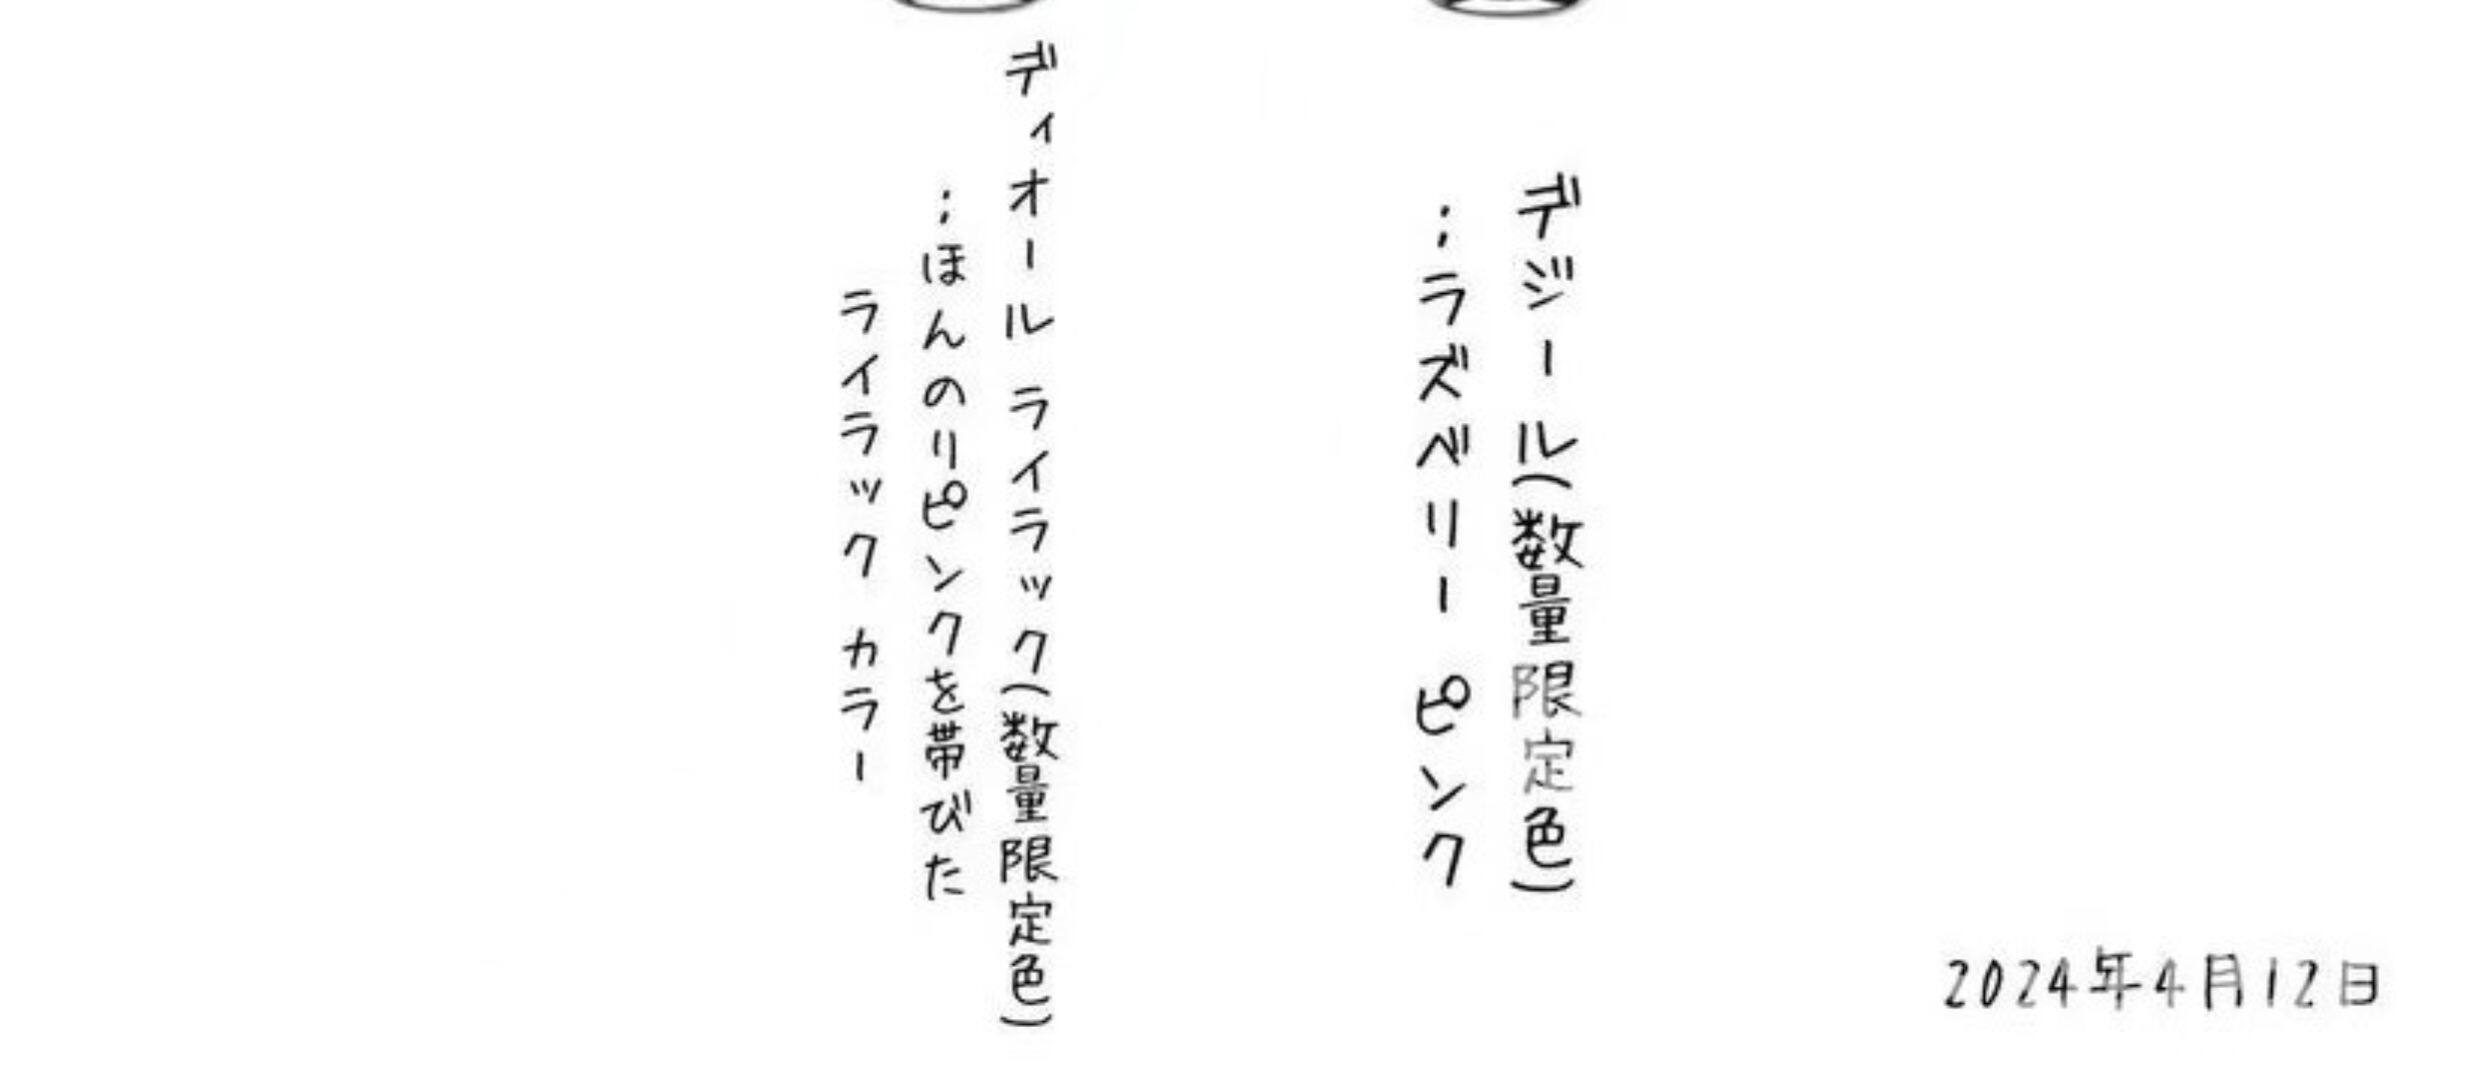 デジール(数量限定色)
;ラズベリー ピンク
ディオール ライラック(数量限定色)
;ほんのりピンクを帯びた
ライラック カラー
2024年4月12日